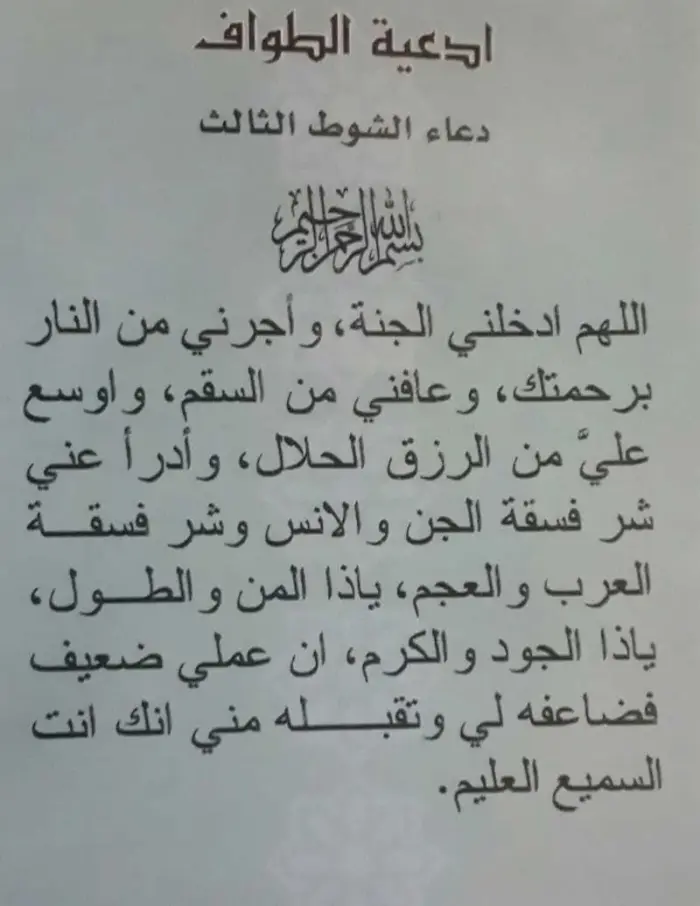 ادعية الطواف
دعاء الشوط الثالث
بسم الله الرحمن الرحيم
اللهم ادخلني الجنة، وأجرني من النار
برحمتك، وعافني من السقم، واوسع
عليَّ من الرزق الحلال، وأدرأ عني
شر فسقة الجن والانس وشر فسقـــة
العرب والعجم، ياذا المن والطـــول،
ياذا الجود والكرم، ان عملي ضعيف
فضاعفه لي وتقبـــــله مني انك انت
السميع العليم.